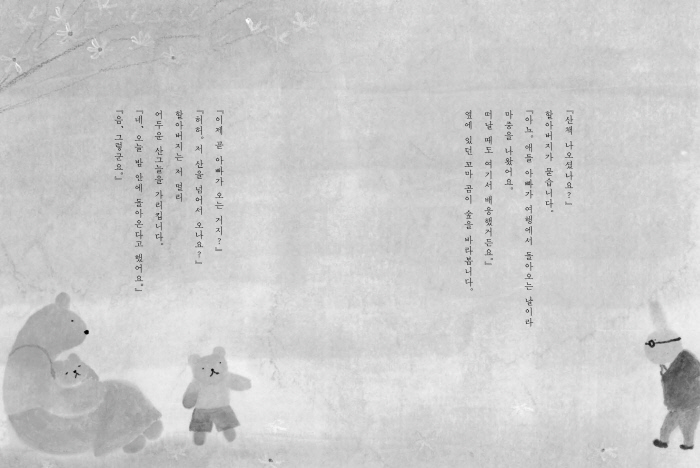 『산책 나오셨나요?』
할아버지가 묻습니다.
『아뇨. 애들 아빠가 여행에서 돌아오는 날이라
마중을 나왔어요.
떠날 때도 여기서 배웅했거든요.』
옆에 있던 꼬마 곰이 숲을 바라봅니다.
『이제 곧 아빠가 오는 거지?』
『허허. 저 산을 넘어서 오나요?』
할아버지는 저 멀리
어두운 산그늘을 가리킵니다.
『네, 오늘 밤 안에 돌아온다고 했어요.』
『음, 그렇군요.』